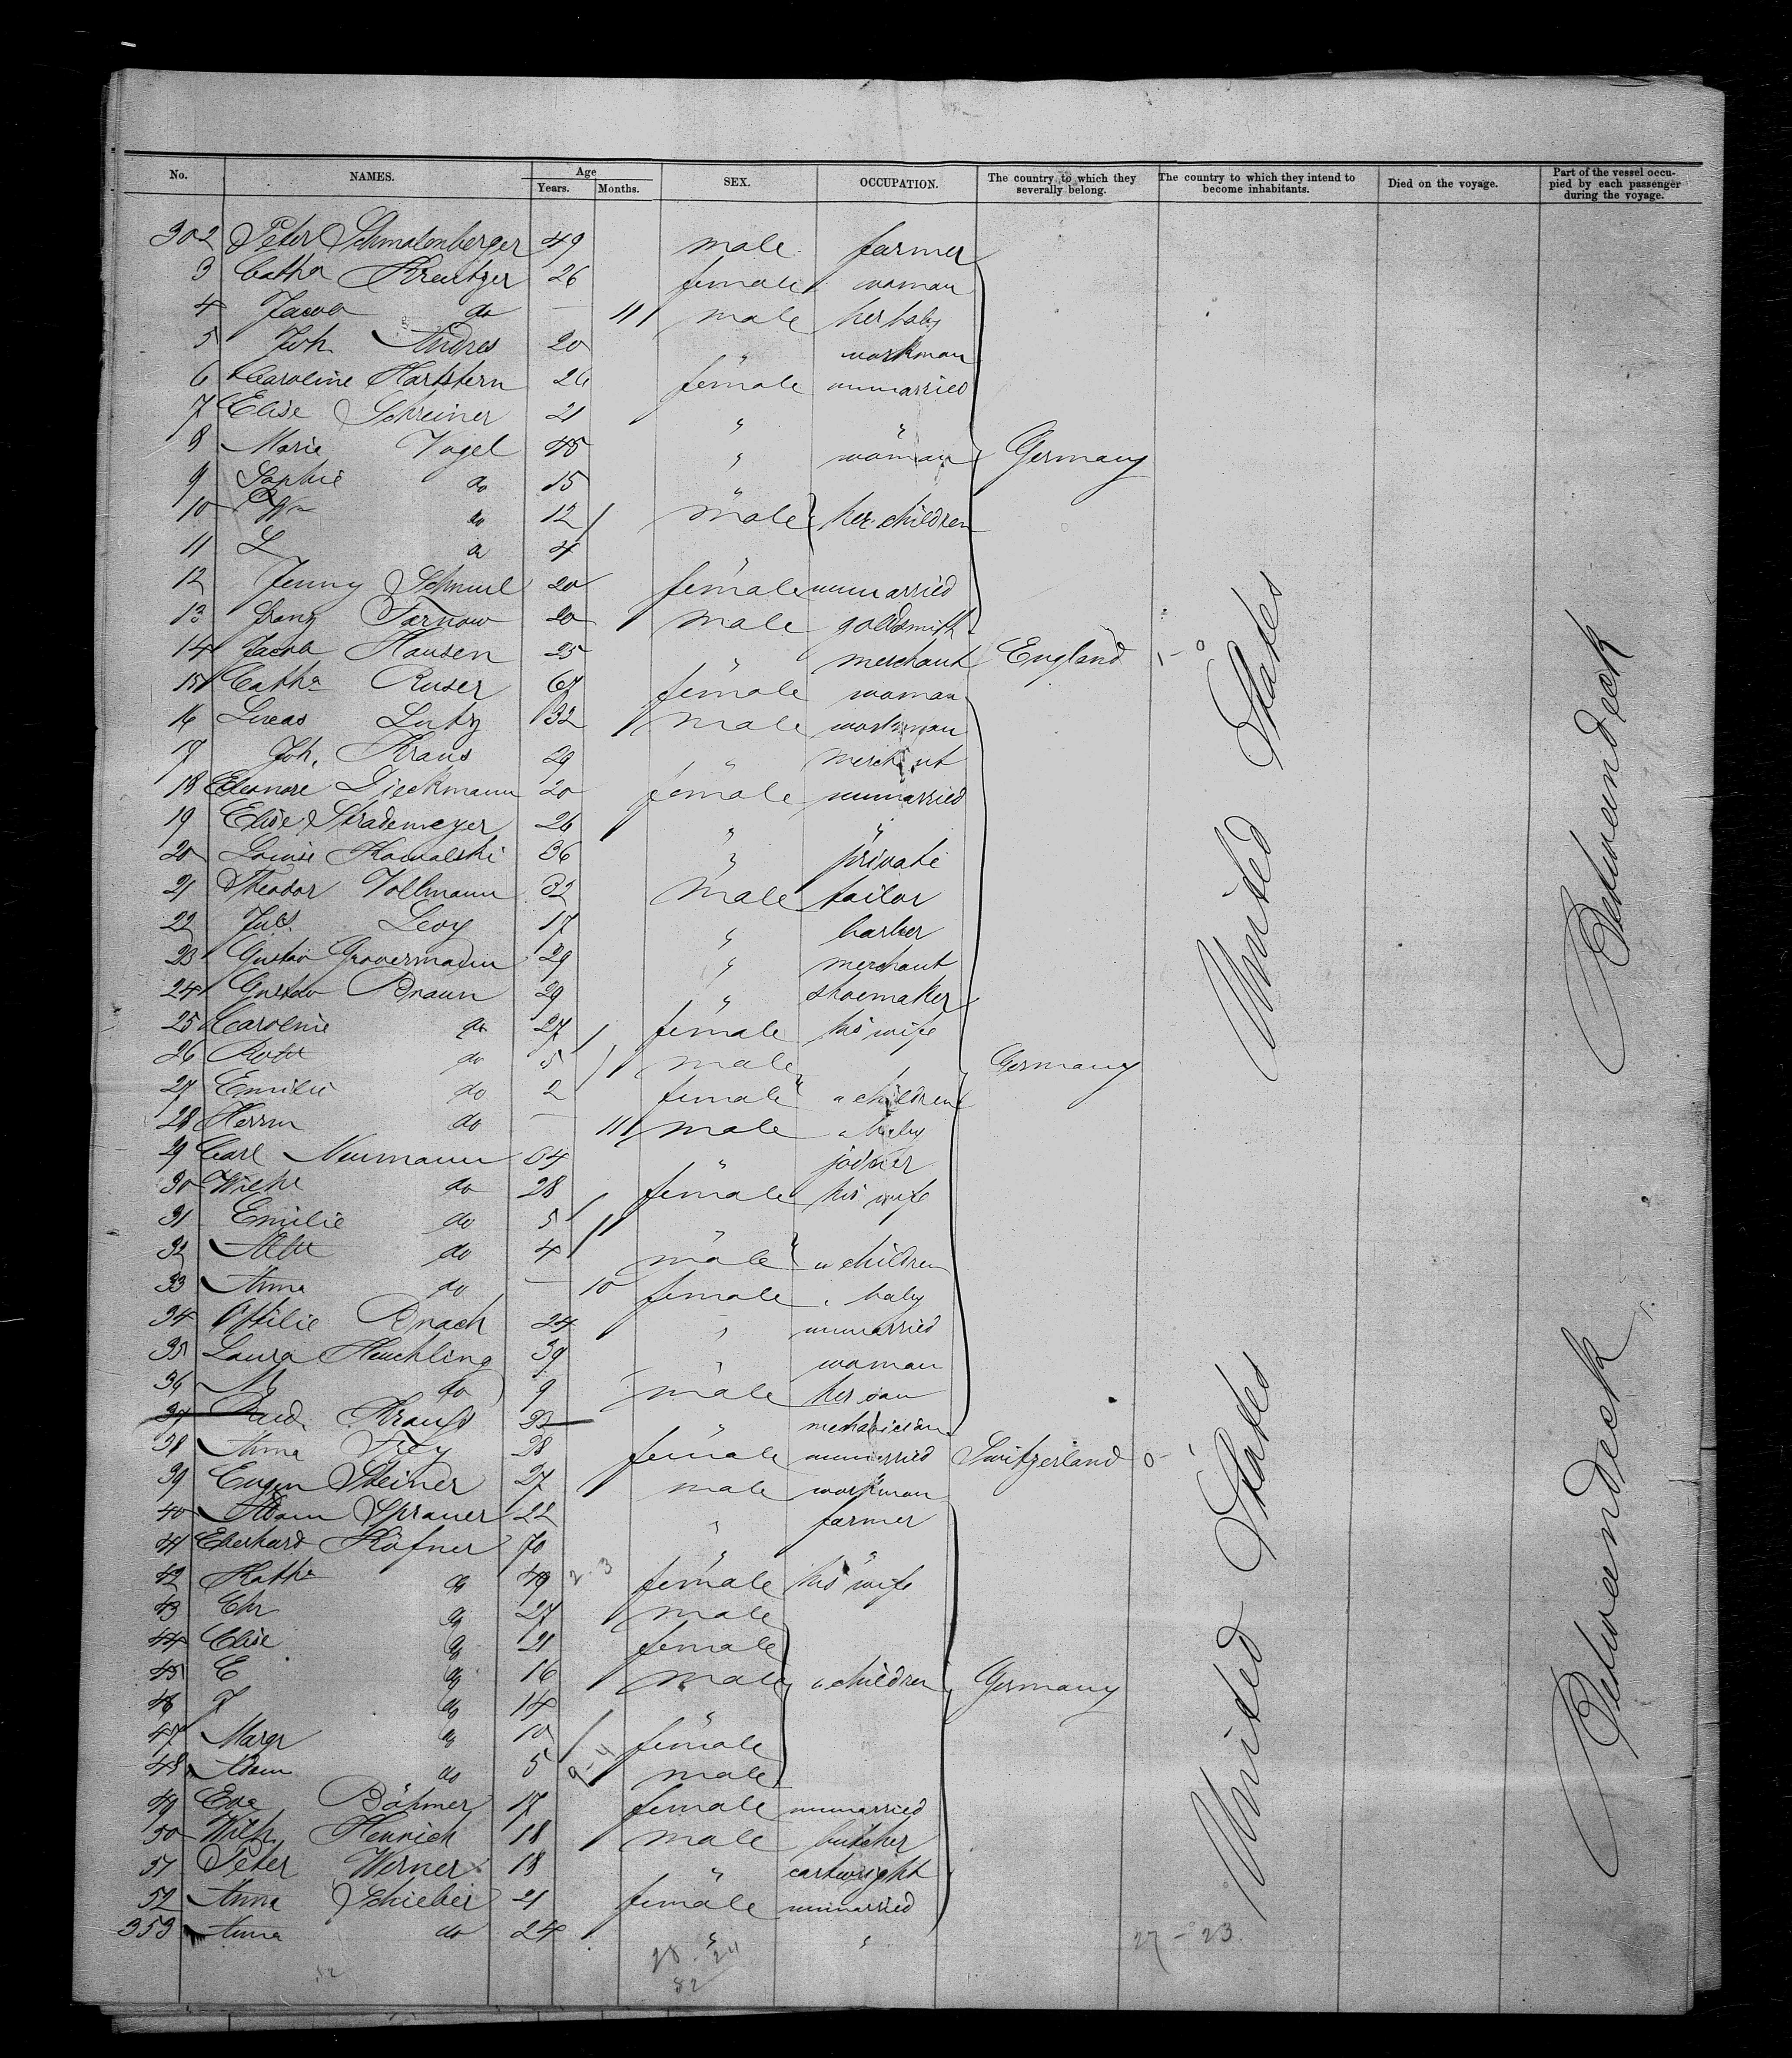 No. NAMES. Age Years. Months. SEX. OCCUPATION. The country to which they severally belong. The country to which they intend to become inhabitants. Died on the voyage. Part of the vessel occupied by each passenger during the voyage.
302 Peter Schmalenberger 49 male farmer
3 Catha Kreutzer 26 female woman
4 Jacob do — 11 male her baby
5 Joh. Andres 20 " workman
6 Caroline Hartstern 26 female unmarried
7 Elise Schreiner 21 " "
8 Marie Vogel 45 " woman Germany
9 Sophie do 15 "
10 do 12 male her children
11 L do 4 "
12 Jenny Schmul 20 female unmarried
13 Franz Tarnow 20 male goldsmith
14 Jacob Hansen 25 " merchant England
15 Catha Ruser 67 female woman
16 Lucas Lutz 32 male workman
17 Joh. Kraus 29 " merchant
18 Eleonore Dieckmann 20 female unmarried
19 Elise Strademeyer 26 " "
20 Louise Kowalski 36 " private
21 Theodor Vollmann 32 male tailor
22 Juls. Levy 17 " barber
23 Gustav Gravermann 29 " merchant
24 Gustav Braun 29 " shoemaker
25 Caroline do 27 female his wife
26 do 5 male Germany
27 Emilie do 2 female " children
28 Herrm do — 11 male " baby
29 Carl Neumann 34 " joiner
30 Wilhe do 28 female his wife
31 Emilie do 5 "
32 do 4 male " children
33 Anna do — 10 female " baby
34 Ottilie Brach 24 " unmarried
35 Laura Heuchling 39 " woman
36 M do 9 male her son
37 Krauss " mechanician
38 Anna Frey 38 female unmarried Switzerland
39 Eugen Steiner 27 male workman
40 Adam Sprauer 22 " farmer
41 Eberhard Höfner 70 " "
42 Katha do 49 female his wife
43 Chr do 27 male
44 Elise do 21 female
45 E do 16 male " children Germany
46 J do 14 "
47 Margr do 10 female
48 Adam do 5 male
49 Eva Böhmer 17 female unmarried
50 Wilh. Henrich 18 male butcher
51 Peter Werner 18 " cartwright
52 Anna Schieber 21 female unmarried
353 Anna do 24 " "
United States
United States
Betweendeck
Betweendeck
27 - 23.
28 - 24
52